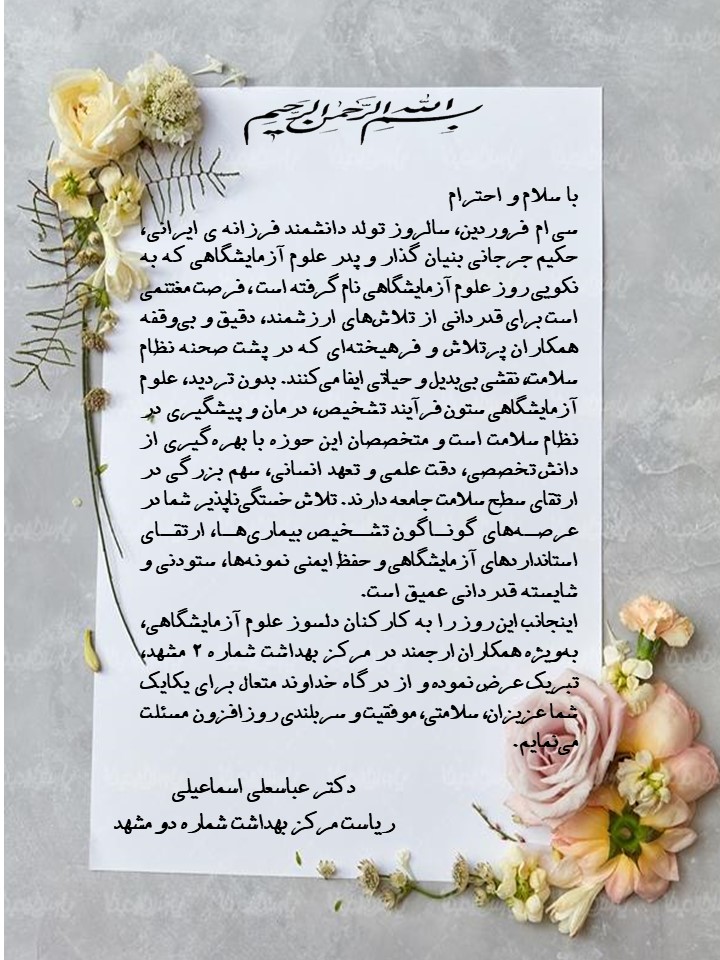 بسم الله الرحمن الرحیم
با سلام و احترام
سی ام فروردین، سالروز تولد دانشمند فرزانه ی ایرانی،
حکیم جرجانی بنیان گذار و پدر علوم آزمایشگاهی که به
نکویی روز علوم آزمایشگاهی نام گرفته است، فرصت مغتنمی
است برای قدردانی از تلاش‌های ارزشمند، دقیق و بی‌وقفه
همکاران پرتلاش و فرهیخته‌ای که در پشت صحنه نظام
سلامت، نقشی بی‌بدیل و حیاتی ایفا می‌کنند. بدون تردید، علوم
آزمایشگاهی ستون فرآیند تشخیص، درمان و پیشگیری در
نظام سلامت است و متخصصان این حوزه با بهره‌گیری از
دانش تخصصی، دقت علمی و تعهد انسانی، سهم بزرگی در
ارتقای سطح سلامت جامعه دارند. تلاش خستگی‌ناپذیر شما در
عرصه‌های گوناگون تشخیص بیماری‌ها، ارتقای
استانداردهای آزمایشگاهی و حفظ ایمنی نمونه‌ها، ستودنی و
شایسته قدردانی عمیق است.
اینجانب این روز را به کارکنان دلسوز علوم آزمایشگاهی،
به‌ویژه همکاران ارجمند در مرکز بهداشت شماره ۲ مشهد،
تبریک عرض نموده و از درگاه خداوند متعال برای یکایک
شما عزیزان، سلامتی، موفقیت و سربلندی روزافزون مسئلت
می‌نمایم.
دکتر عباسعلی اسماعیلی
ریاست مرکز بهداشت شماره دو مشهد